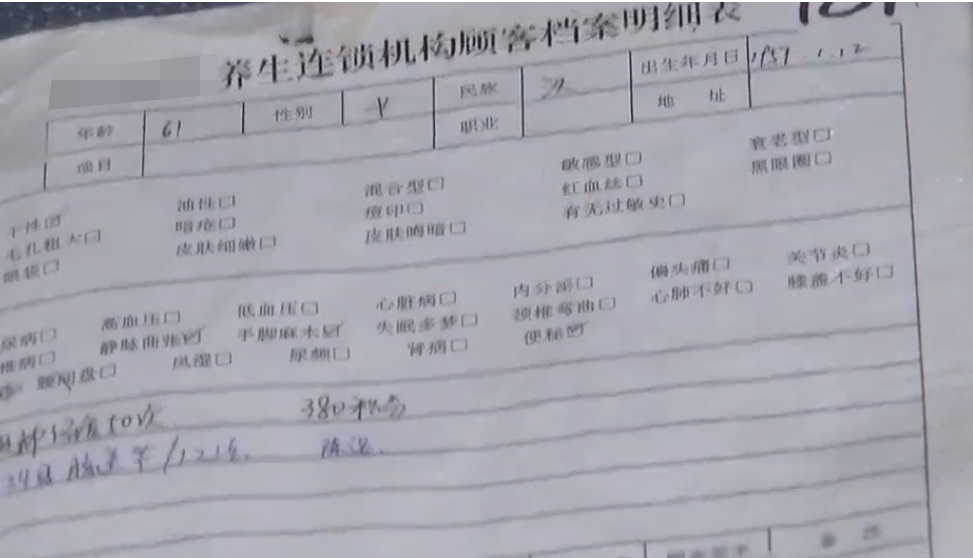 养生连锁机构顾客档案明细表
年龄 61 性别 民族 汉 出生年月日 1957.1.12
项目 职业 地址
干性☑ 油性□ 混合型□ 敏感型□ 衰老型□
毛孔粗大□ 暗疮□ 痘印□ 红血丝□ 黑眼圈□
眼袋□ 皮肤细嫩□ 皮肤晦暗□ 有无过敏史□
尿病□ 高血压□ 低血压□ 心脏病□ 内分泌□ 偏头痛□ 关节炎□
椎病□ 静脉曲张☑ 手脚麻木☑ 失眠多梦□ 颈椎弯曲□ 心肺不好□ 膝盖不好□
腰间盘□ 风湿□ 尿频□ 肾病□ 便秘☑
50次 380积分